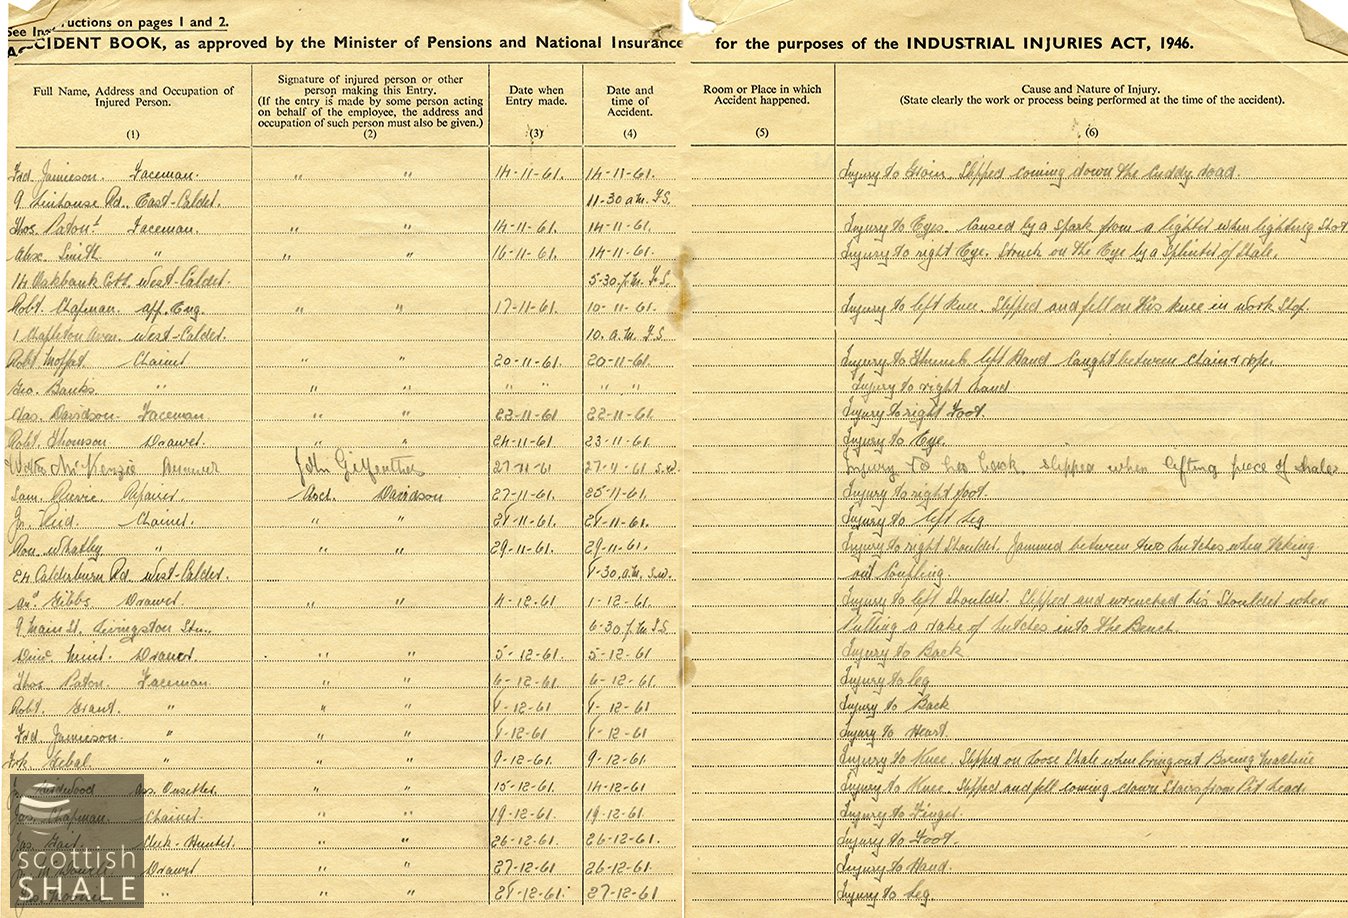 See Instructions on pages 1 and 2.
ACCIDENT BOOK, as approved by the Minister of Pensions and National Insurance for the purposes of the INDUSTRIAL INJURIES ACT, 1946.
Full Name, Address and Occupation of Injured Person. (1)
Signature of injured person or other person making this Entry. (If the entry is made by some person acting on behalf of the employee, the address and occupation of such person must also be given.) (2)
Date when Entry made. (3)
Date and time of Accident. (4)
Room or Place in which Accident happened. (5)
Cause and Nature of Injury. (State clearly the work or process being performed at the time of the accident). (6)
Fred. Jamieson. Faceman. " " 14-11-61. 14-11-61. Injury to Groin. Slipped coming down the Cuddy road.
9 Limhouse Rd., East-Calder. 11-30 a.m. F.S.
Thos. Paton Faceman. " " 14-11-61. 14-11-61. Injury to Eyes. Caused by a spark from a lighter when lighting Shot
Alex. Smith " " " 16-11-61. 14-11-61. Injury to right Eye. Struck on the Eye by a Splinter of Shale.
14 Oakbank Cott. West-Calder. 5-30. p.m. F.S.
Robt. Chapman. App. Eng. " " 17-11-61. 10-11-61. Injury to left Knee. Slipped and fell on his knee in work Shop.
1 Chapleton Aven. West-Calder. 10. a.m. F.S.
Robt Moffat Chainer " " 20-11-61. 20-11-61. Injury to Thumb left Hand Caught between Chain & rope.
Geo. Banks " " " " " " " Injury to right hand
Chas. Davidson. Faceman. " " 22-11-61 22-11-61. Injury to right Foot.
Robt. Thomson Drawer. " " 24-11-61 23-11-61. Injury to Eye.
Walter McKenzie 27-11-61 27-11-61 S.W. Injury to his back. slipped when lifting piece of shale
Sam. Repairer. Arch. Davidson 27-11-61. 25-11-61. Injury to right foot.
Reid. Chainer. " " 28-11-61. 28-11-61. Injury to left Leg
Ron. " " " 29-11-61. 29-11-61. Injury to right Shoulder. Jammed between two hutches when taking
24 Calderburn Rd. West-Calder. 8-30. a.m. S.W. out Coupling.
Gibbs Drawer. " " 4-12-61 1-12-61. Injury to left Shoulder. Slipped and wrenched his Shoulder when
9 Main St. Livingston Stn., 6-30 p.m F.S. Putting a rake of hutches into the Bench
Drawer " " 5-12-61. 5-12-61 Injury to Back
Thos. Paton. Faceman. " " 6-12-61 6-12-61. Injury to leg
Robt. Grant. " " " 8-12-61 8-12-61 Injury to Back
Fred. Jamieson. " " " 8-12-61 8-12-61 Injury to Heart.
" " " 9-12-61. 9-12-61. Injury to Knee. Slipped on loose Shale when bring out Boring Machine
Ass. Onsetter. " " 15-12-61. 14-12-61 Injury to Knee. Slipped and fell coming down Stairs from Pit head.
Jas. Chapman. Chainer. " " 19-12-61. 19-12-61. Injury to Finger.
Jas. Tait. Clerk-Hunter. " " 26-12-61. 26-12-61. Injury to Foot.
Drawer " " 27-12-61 26-12-61. Injury to Hand.
" " " 28-12-61. 27-12-61 Injury to Leg.
scottish
SHALE